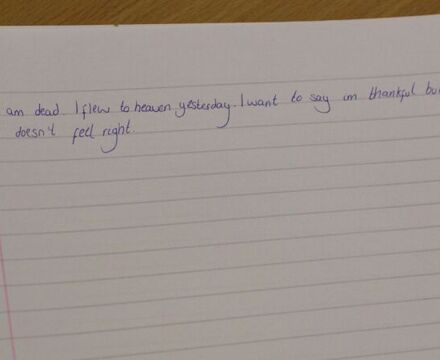 am dead. I flew to heaven yesterday. I want to say im thankful bu
doesn't feel right.